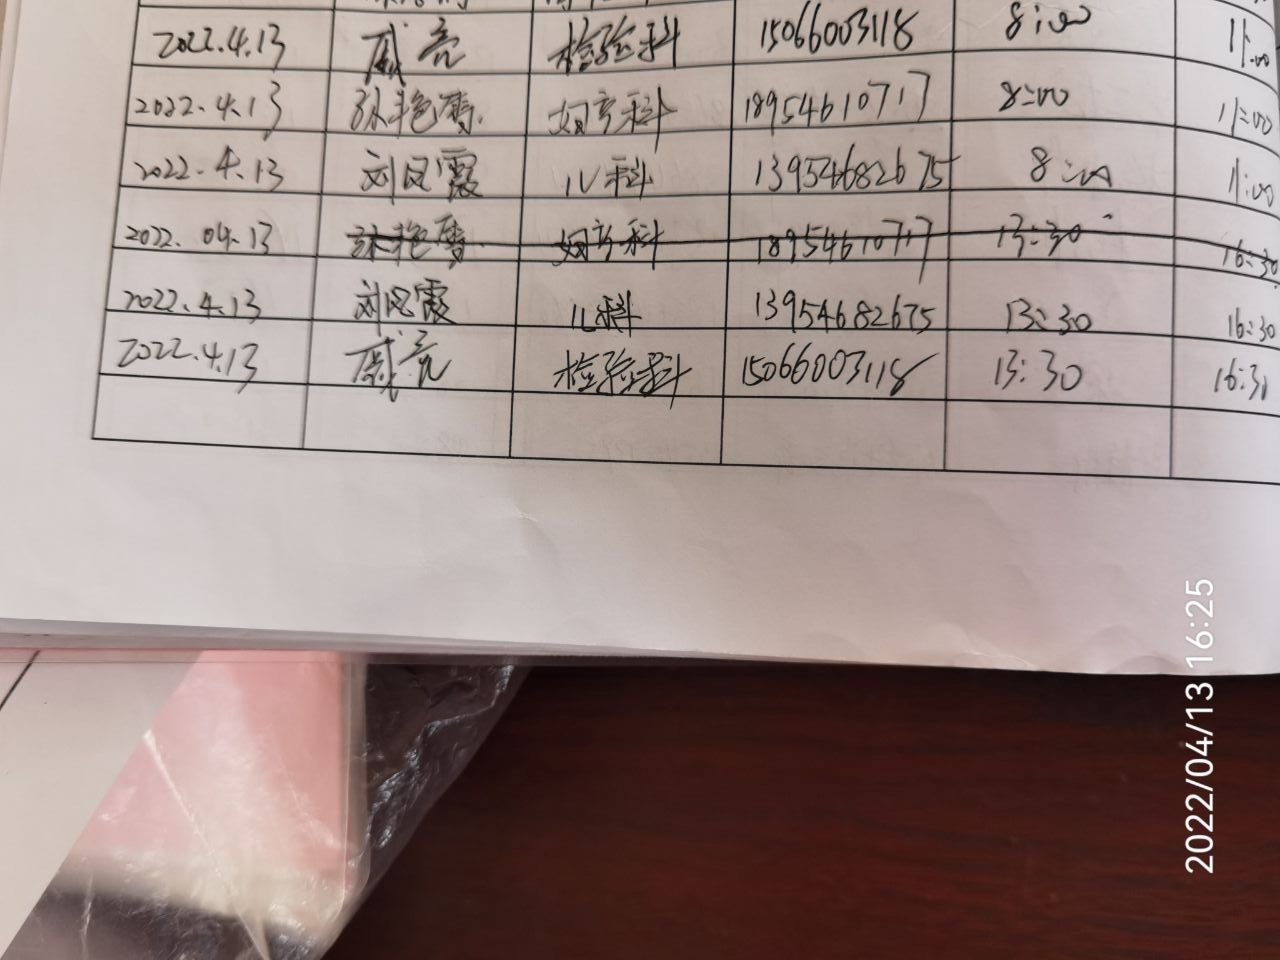 2022.4.13 戚亮 检验科 15066003118 8:00 11:00
2022.4.13 孙艳霞 妇产科 18954610717 8:00 11:00
2022.4.13 刘凤霞 儿科 13954682675 8:00 11:00
2022.04.13 妇产科 18954610717 13:30 16:30
2022.4.13 刘凤霞 儿科 13954682675 13:30 16:30
2022.4.13 戚亮 检验科 15066003118 13:30 16:30
2022/04/13 16:25